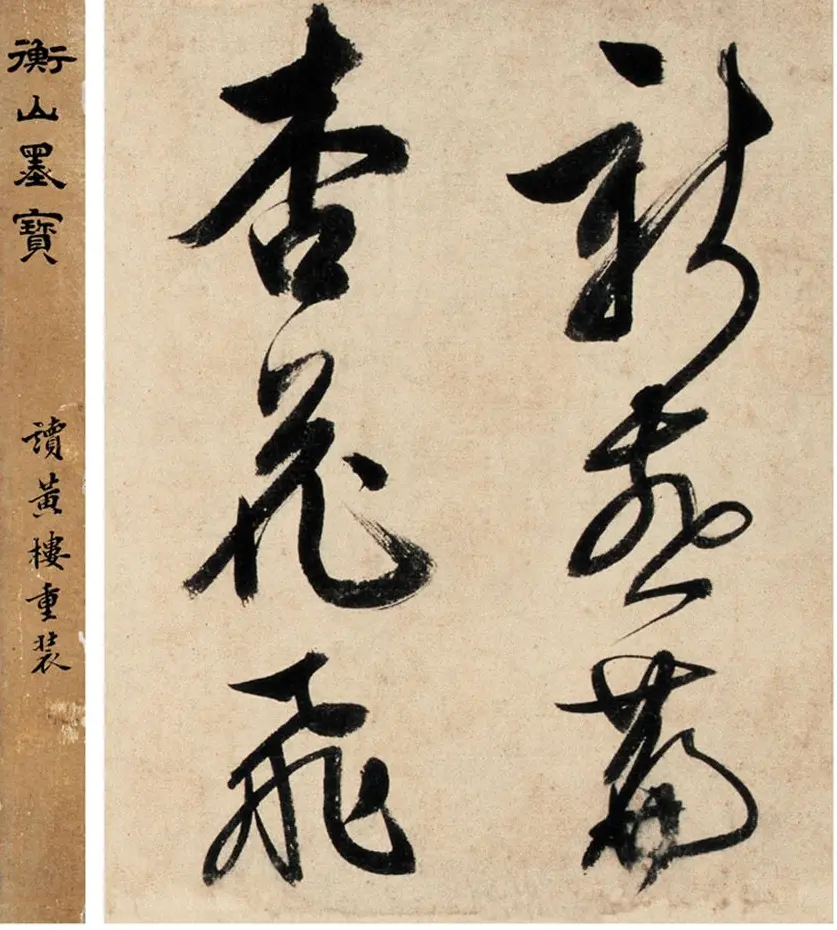 衡山墨寶　讀黃樓重裝
新
杏花飛